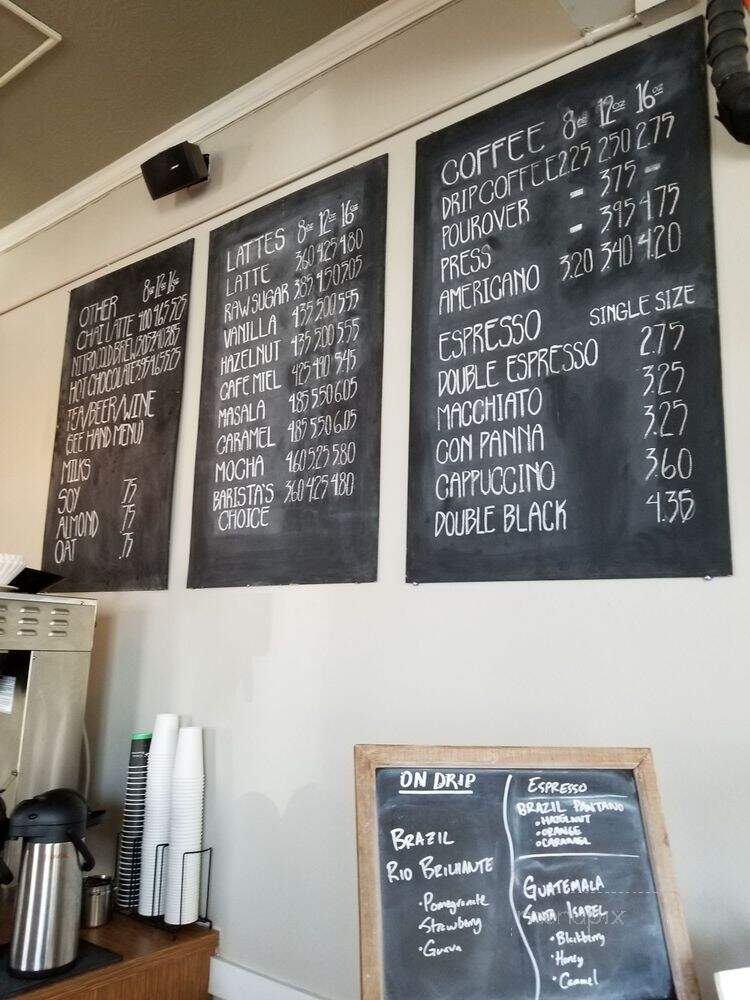 OTHER 8oz 12oz 16oz
CHAI LATTE 4.00 4.65 5.25
NITRO COLD BREW
HOT CHOCOLATE
TEA/BEER/WINE
(SEE HAND MENU)
MILKS
SOY .75
ALMOND .75
OAT .75
LATTES 8oz 12oz 16oz
LATTE 3.60 4.25 4.80
RAW SUGAR 3.85 4.50 5.05
VANILLA 4.35 5.00 5.55
HAZELNUT 4.35 5.00 5.55
CAFE MIEL 4.25 4.90 5.45
MASALA 4.85 5.50 6.05
CARAMEL 4.85 5.50 6.05
MOCHA 4.60 5.25 5.80
BARISTA'S 3.60 4.25 4.80
CHOICE
COFFEE 8oz 12oz 16oz
DRIP COFFEE 2.25 2.50 2.75
POUROVER - 3.75 -
PRESS - 3.95 4.75
AMERICANO 3.20 3.40 4.20
ESPRESSO SINGLE SIZE
DOUBLE ESPRESSO 2.75
MACCHIATO 3.25
CON PANNA 3.25
CAPPUCCINO 3.60
DOUBLE BLACK 4.35
ON DRIP
BRAZIL
RIO BRILHANTE
•Pomegranate
Strawberry
•Guava
ESPRESSO
BRAZIL PANTANO
•HAZELNUT
•ORANGE
•CARAMEL
GUATEMALA
SANTA ISABEL
•Blackberry
•Honey
•Caramel